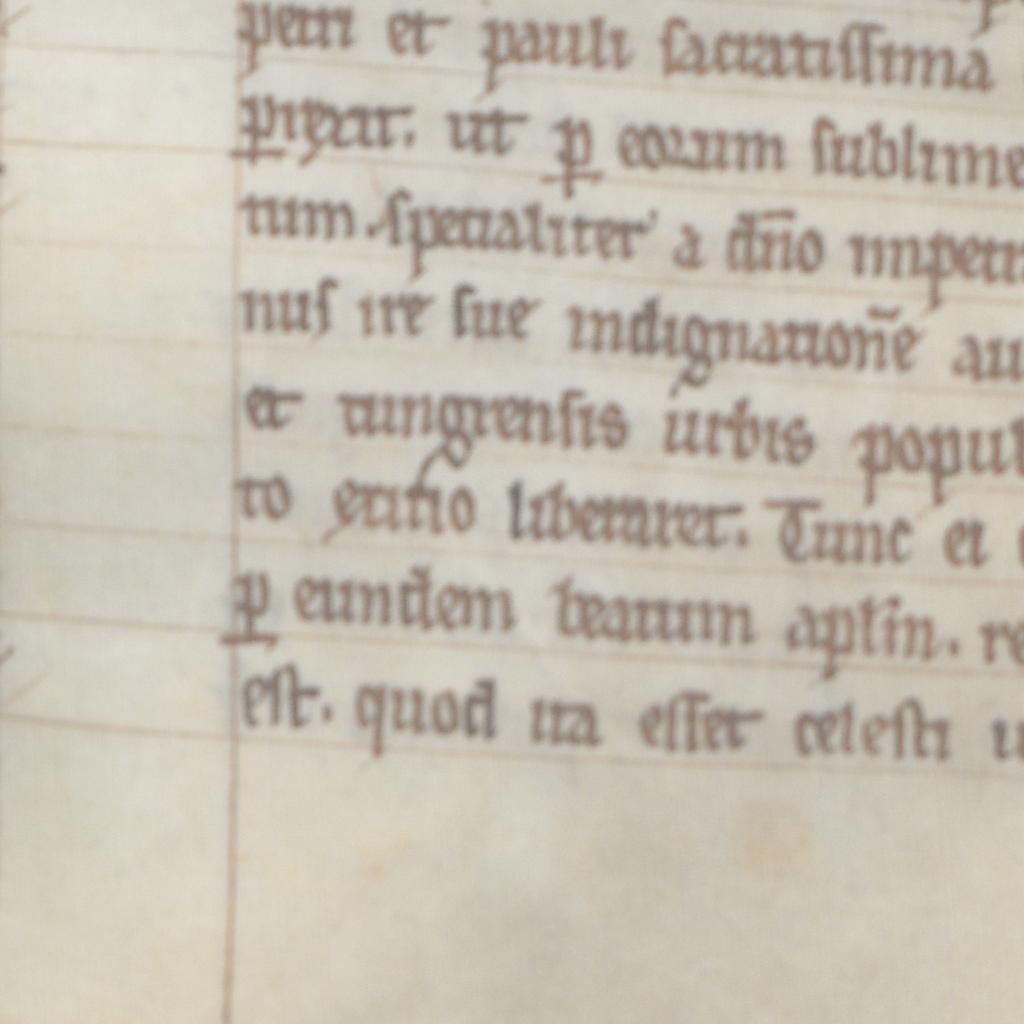 petri et pauli sacratissima
ꝑ ut ꝑ eorum sublime
tum. specialiter a dn̄o impetr
nus ire sue indignation̄e au
et tungrensis urbis popul
to liberaret. Tunc et
ꝑ eundem beatum apl̄m. re
est. quod ita esset celesti